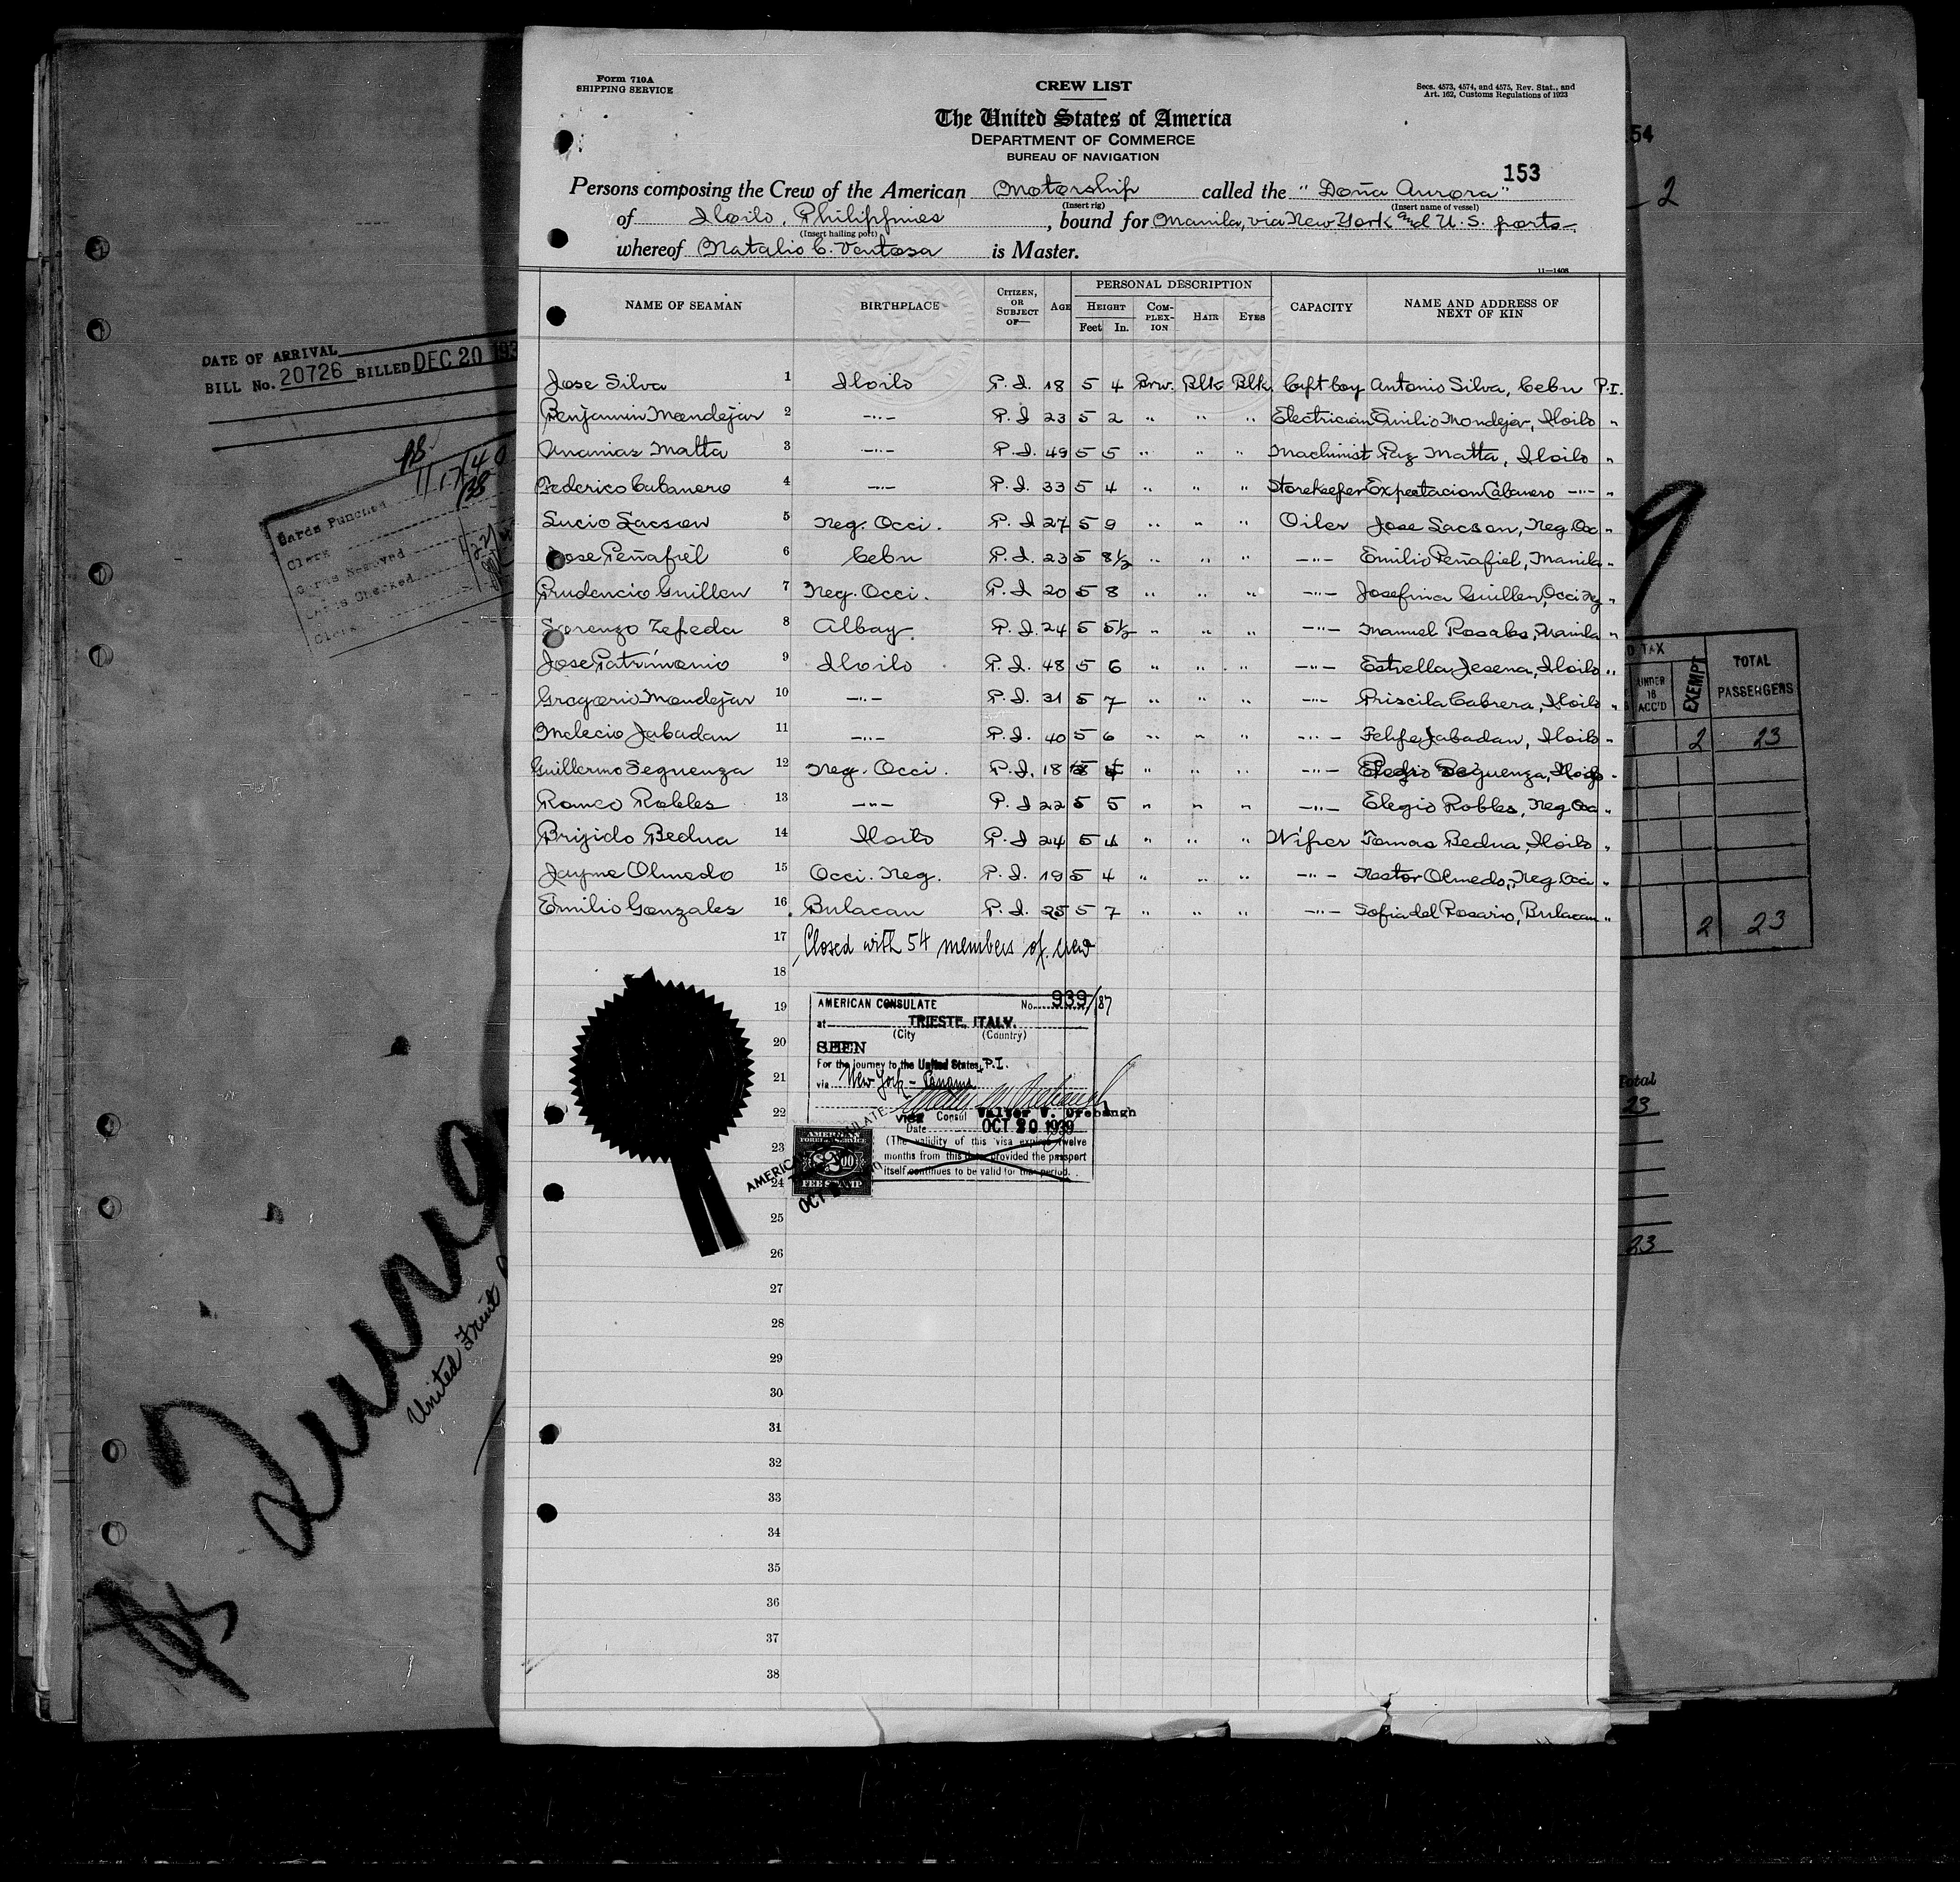 Form 710A
SHIPPING SERVICE
CREW LIST
Secs. 4573, 4574, and 4575, Rev. Stat., and
Art. 162, Customs Regulations of 1923
The United States of America
DEPARTMENT OF COMMERCE
BUREAU OF NAVIGATION
153
Persons composing the Crew of the American Motorship called the "Doña Aurora"
(Insert rig) (Insert name of vessel)
of Iloilo, Philippines, bound for Manila, via New York and U. S. ports
(Insert hailing port)
whereof Natalio C. Ventosa is Master.
11—1408
NAME OF SEAMAN BIRTHPLACE CITIZEN, OR SUBJECT OF— AGE PERSONAL DESCRIPTION CAPACITY NAME AND ADDRESS OF NEXT OF KIN
HEIGHT COM-PLEX-ION HAIR EYES
Feet In.
Jose Silva 1 Iloilo P. I. 18 5 4 Brw. Blk Blk Cpt boy Antonio Silva, Cebu P.I.
Benjamin Mondejar 2 —"— P. I 23 5 2 " " " Electrician Emilio Mondejar, Iloilo "
Ananias Matta 3 —"— P. I. 49 5 5 " " " Machinist Paz Matta, Iloilo "
Federico Cabanero 4 —"— P. I. 33 5 4 " " " Storekeeper Expectacion Cabanero —"— "
Lucio Lacson 5 Neg. Occi. P. I 27 5 9 " " " Oiler Jose Lacson, Neg. Occ "
Jose Peñafiel 6 Cebu P. I. 23 5 8½ " " " —"— Emilio Peñafiel, Manila "
Prudencio Guillen 7 Neg. Occi. P. I 20 5 8 " " " —"— Josefina Guillen, Occi Neg "
Lorenzo Zepeda 8 Albay P. I. 24 5 5½ " " " —"— Manuel Rosales, Manila "
Jose Patrimonio 9 Iloilo P. I. 48 5 6 " " " —"— Estrella Jesena, Iloilo "
Gregorio Mondejar 10 —"— P. I. 31 5 7 " " " —"— Priscila Cabrera, Iloilo "
Melecio Jabadan 11 —"— P. I. 40 5 6 " " " —"— Felipe Jabadan, Iloilo "
Guillermo Seguenza 12 Neg. Occi. P. I. 18 5 4 " " " —"— Seguenza, Iloilo "
Romeo Robles 13 —"— P. I 22 5 5 " " " —"— Elegio Robles, Neg. Occ "
Brijido Bedua 14 Iloilo P. I 24 5 4 " " " Wiper Tomas Bedua, Iloilo "
Jayme Olmedo 15 Occi. Neg. P. I. 19 5 4 " " " —"— Nestor Olmedo, Neg. Occi "
Emilio Gonzales 16 Bulacan P. I. 25 5 7 " " " —"— Sofia del Rosario, Bulacan "
17 Closed with 54 members of crew
18
19
20
21
22
23
24
25
26
27
28
29
30
31
32
33
34
35
36
37
38
AMERICAN CONSULATE No. 939/87
at TRIESTE, ITALY.
(City (Country)
SEEN
For the journey to the United States, P.I.
via New York - Panama
Vice Consul Walter W. Orebaugh
Date OCT 20 1939
(The validity of this visa expires twelve
months from this date provided the passport
itself continues to be valid for that period.
AMERICAN
FOREIGN SERVICE
FEE STAMP
DATE OF ARRIVAL
BILL No. 20726 BILLED DEC 20 193
Cards Punched
Clerk
Cards Removed
Cards Checked
Clerk
United Fruit
54
2
TAX
UNDER 16 ACC'D EXEMPT TOTAL PASSENGERS
2 23
2 23
Total
23
23